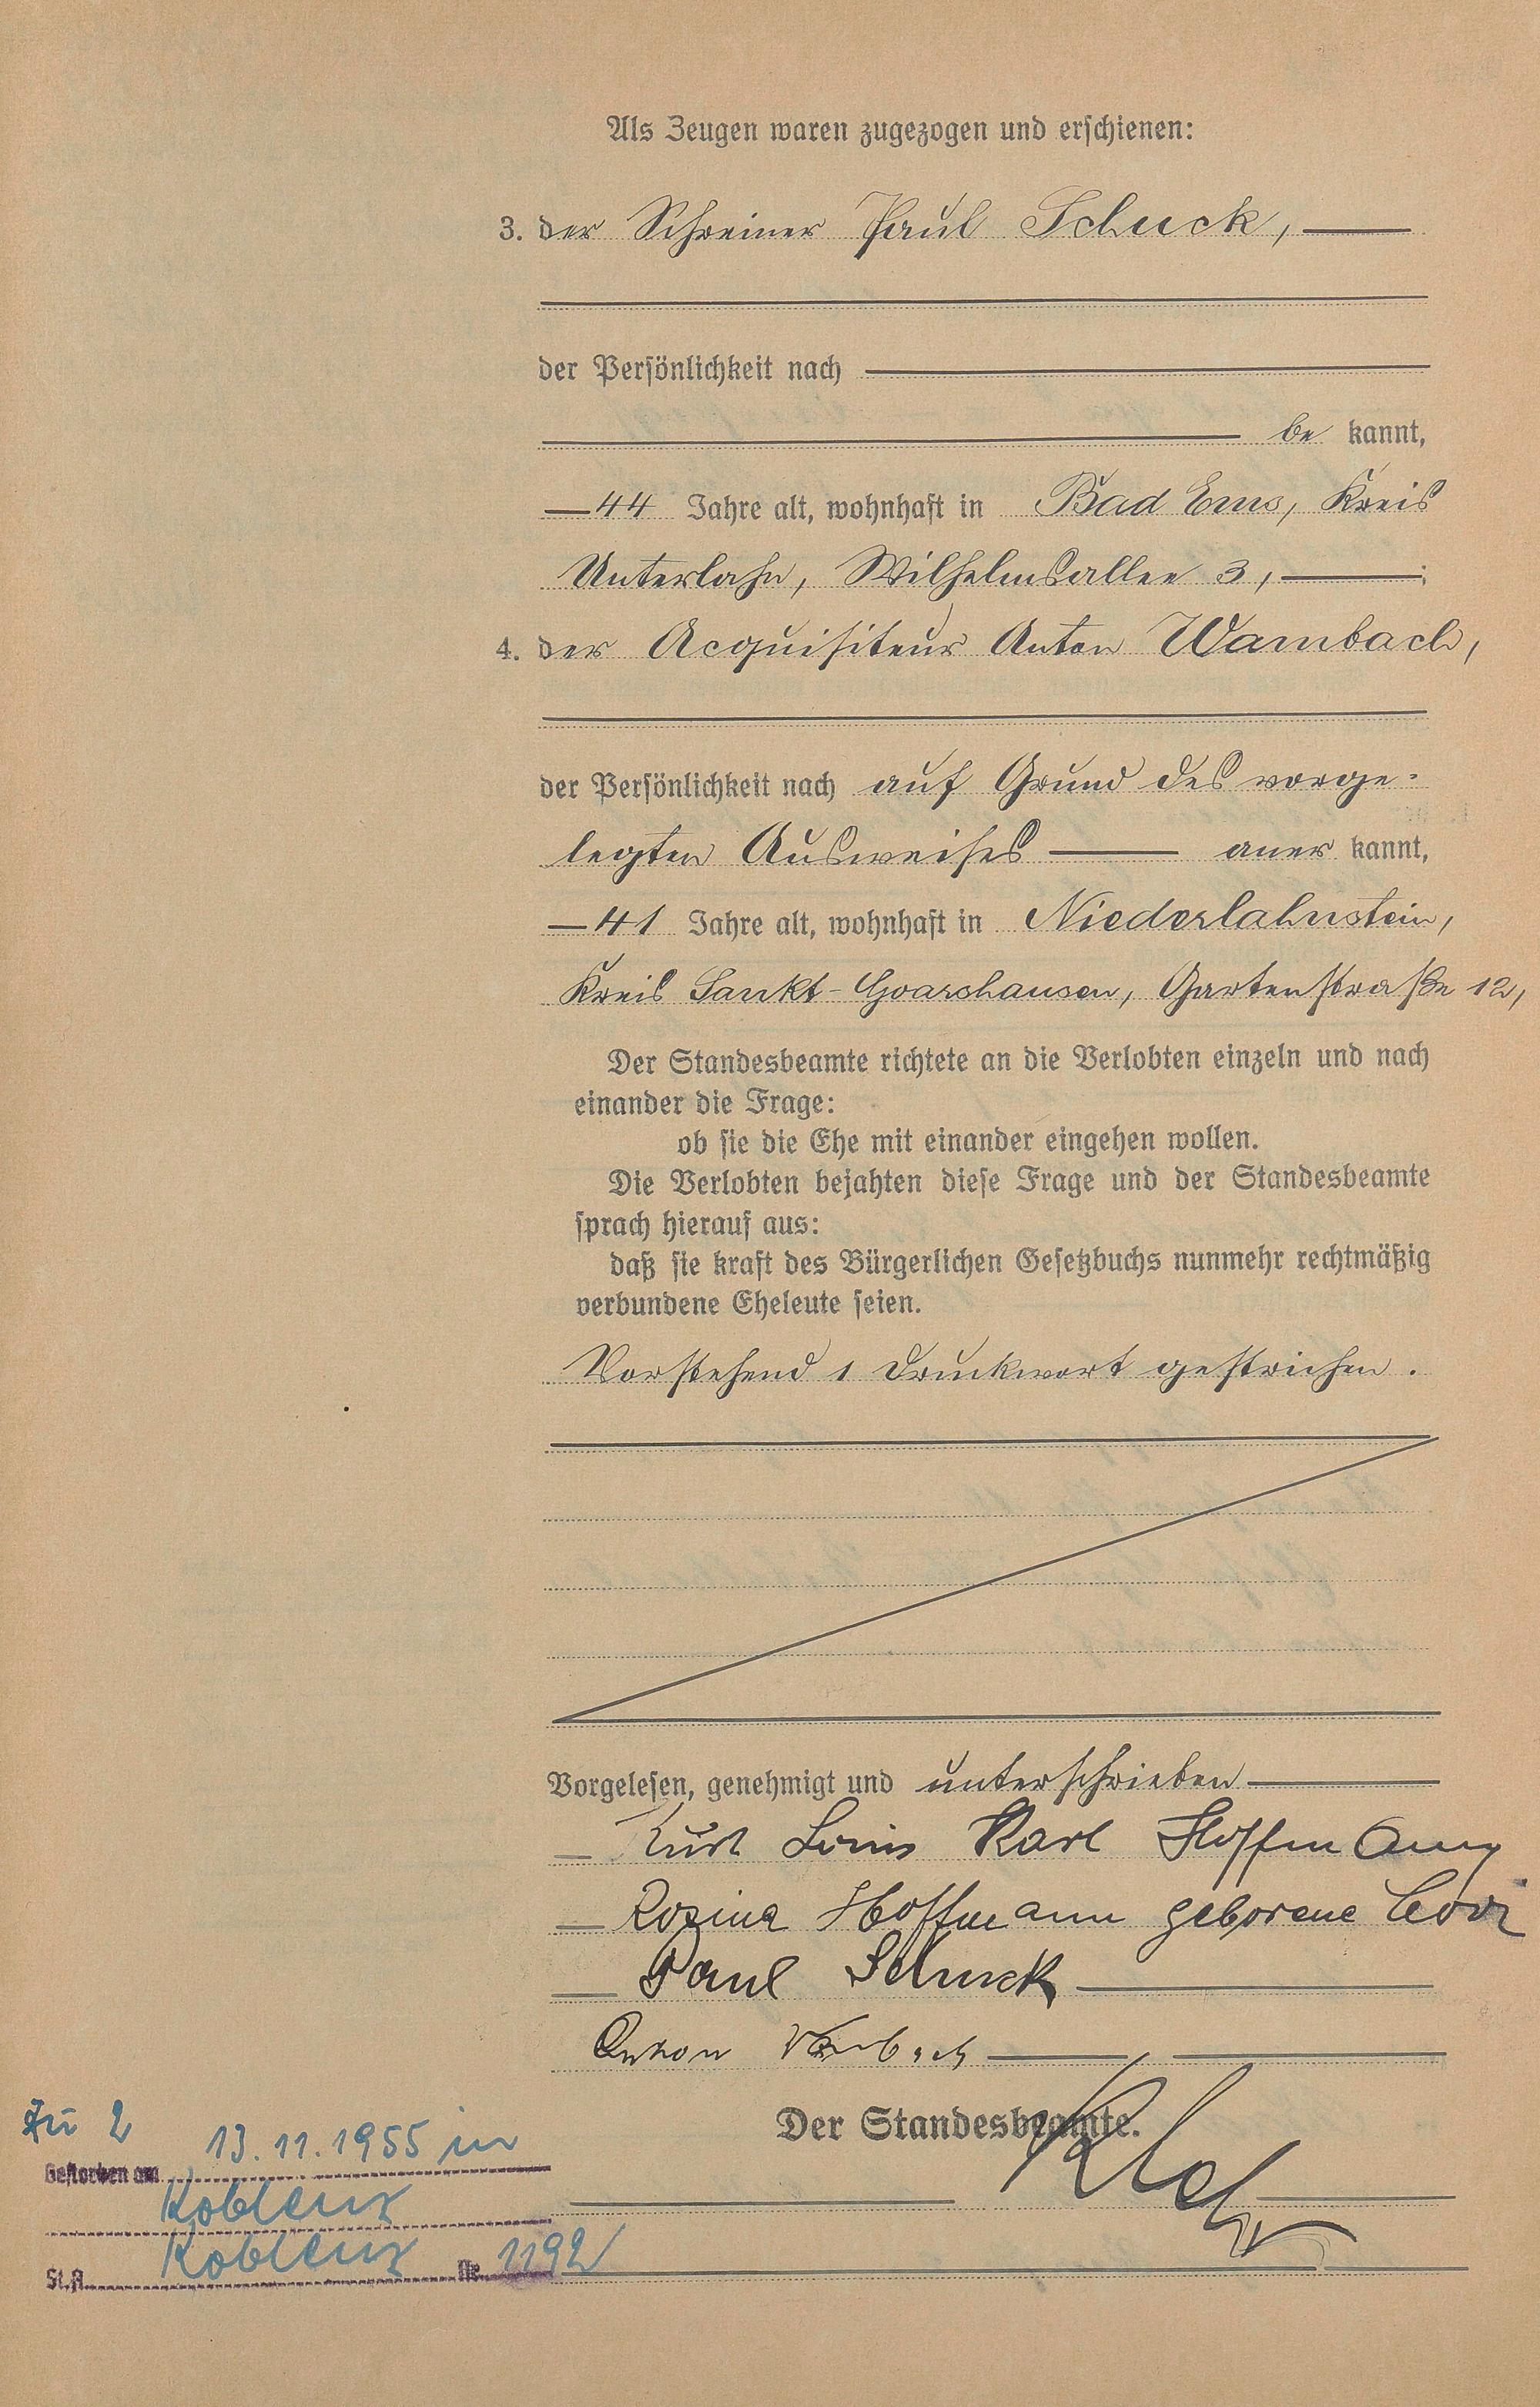 Als Zeugen waren zugezogen und erschienen:
3. der Schreiner Paul Schuck,
der Persönlichkeit nach
be kannt,
44 Jahre alt, wohnhaft in Bad Ems, Kreis
Unterlahn, Wilhelmsallee 3, ;
4. der Acquisiteur Anton Wambach,
der Persönlichkeit nach auf Grund des vorge-
legten Ausweises aner kannt,
41 Jahre alt, wohnhaft in Niederlahnstein,
Kreis Sankt-Goarshausen, Gartenstraße 12,
Der Standesbeamte richtete an die Verlobten einzeln und nach
einander die Frage:
ob sie die Ehe mit einander eingehen wollen.
Die Verlobten bejahten diese Frage und der Standesbeamte
sprach hierauf aus:
daß sie kraft des Bürgerlichen Gesetzbuchs nunmehr rechtmäßig
verbundene Eheleute seien.
Vorstehend 1 Druckwort gestrichen.
Vorgelesen, genehmigt und unterschrieben
Kurt Louis Karl Hoffmann
Rosina Hoffmann geborene
Paul Schuck
Anton Wambach
Der Standesbeamte.
Zu 2
Gestorben am 13.11.1955 in
Koblenz
St.A. Koblenz Nr. 1192